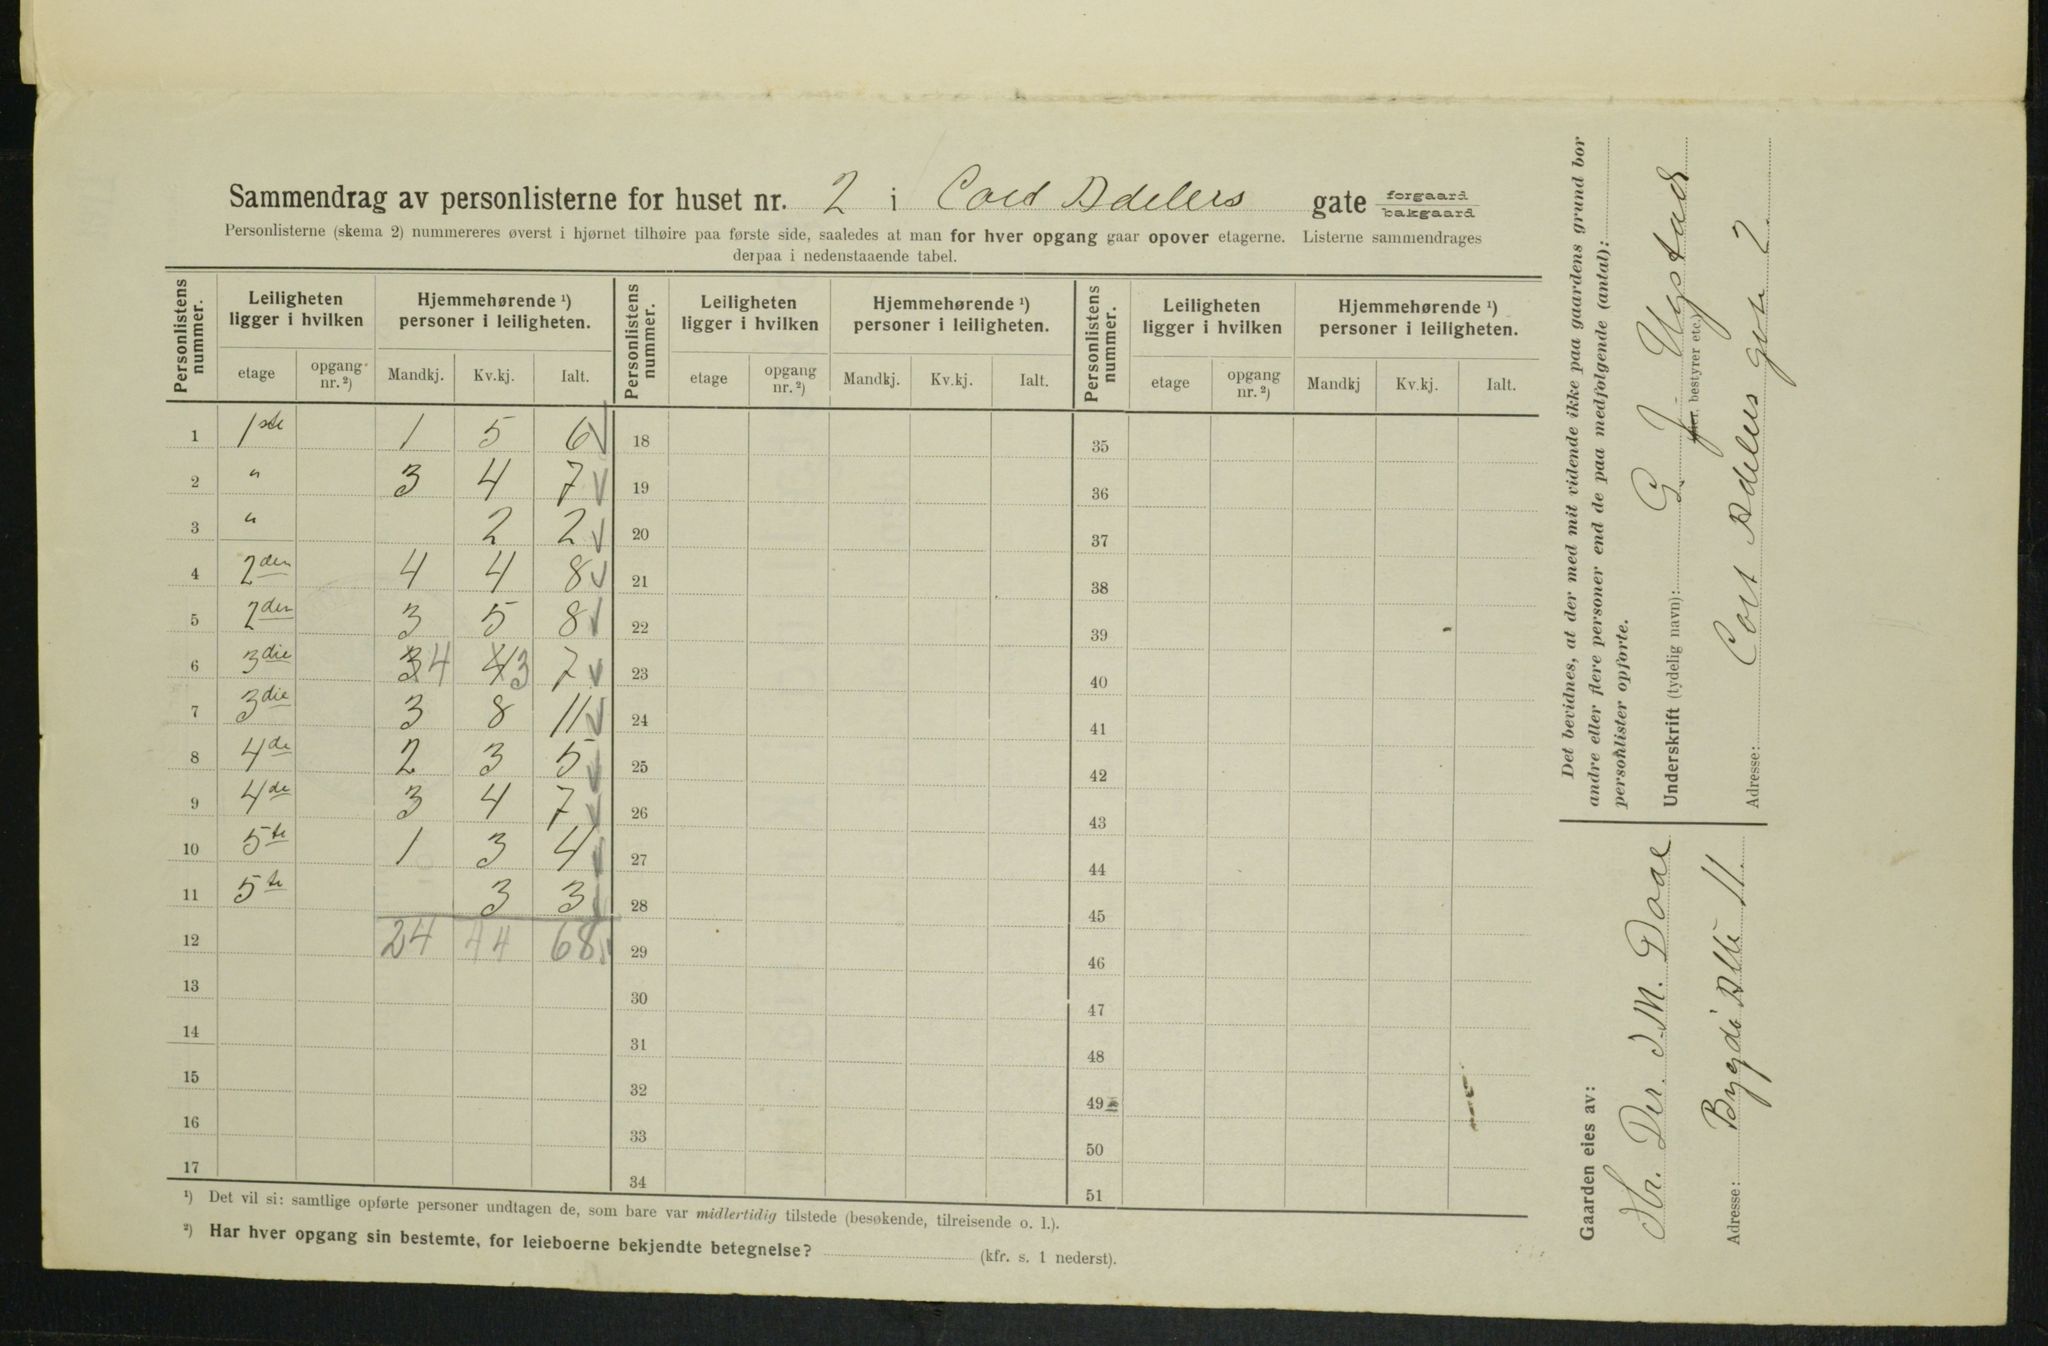 Sammendrag av personlisterne for huset nr. 2 i Cort Adelers gate forgaard bakgaard
Personlisterne (skema 2) nummereres øverst i hjørnet tilhøire paa første side, saaledes at man for hver opgang gaar opover etagerne. Listerne sammendrages
derpaa i nedenstaaende tabel.
Personlistens nummer. Leiligheten ligger i hvilken Hjemmehørende ¹) personer i leiligheten. Personlistens nummer. Leiligheten ligger i hvilken Hjemmehørende ¹) personer i leiligheten. Personlistens nummer. Leiligheten ligger i hvilken Hjemmehørende ¹) personer i leiligheten.
etage opgang nr. ²) Mandkj. Kv.kj. Ialt. etage opgang nr. ²) Mandkj. Kv.kj. Ialt. etage opgang nr. ²) Mandkj Kv.kj. Ialt.
1 1ste 1 5 6 18 35
2 " 3 4 7 19 36
3 " 2 2 20 37
4 2den 4 4 8 21 38
5 2den 3 5 8 22 39
6 3die 3 4 4 3 7 23 40
7 3die 3 8 11 24 41
8 4de 2 3 5 25 42
9 4de 3 4 7 26 43
10 5te 1 3 4 27 44
11 5te 3 3 28 45
12 24 44 68 29 46
13 30 47
14 31 48
15 32 49
16 33 50
17 34 51
¹) Det vil si: samtlige opførte personer undtagen de, som bare var midlertidig tilstede (besøkende, tilreisende o. l.).
²) Har hver opgang sin bestemte, for leieboerne bekjendte betegnelse? (kfr. s. 1 nederst).
Det bevidnes, at der med mit vidende ikke paa gaardens grund bor
andre eller flere personer end de paa medfølgende (antal):
personlister opførte.
Underskrift (tydelig navn): G. J. Nystad
bestyrer etc.)
Adresse: Cort Adelers gate 2.
Gaarden eies av:
Hr. Dir. J. M. Doae
Adresse: Bygdø Allé 11.